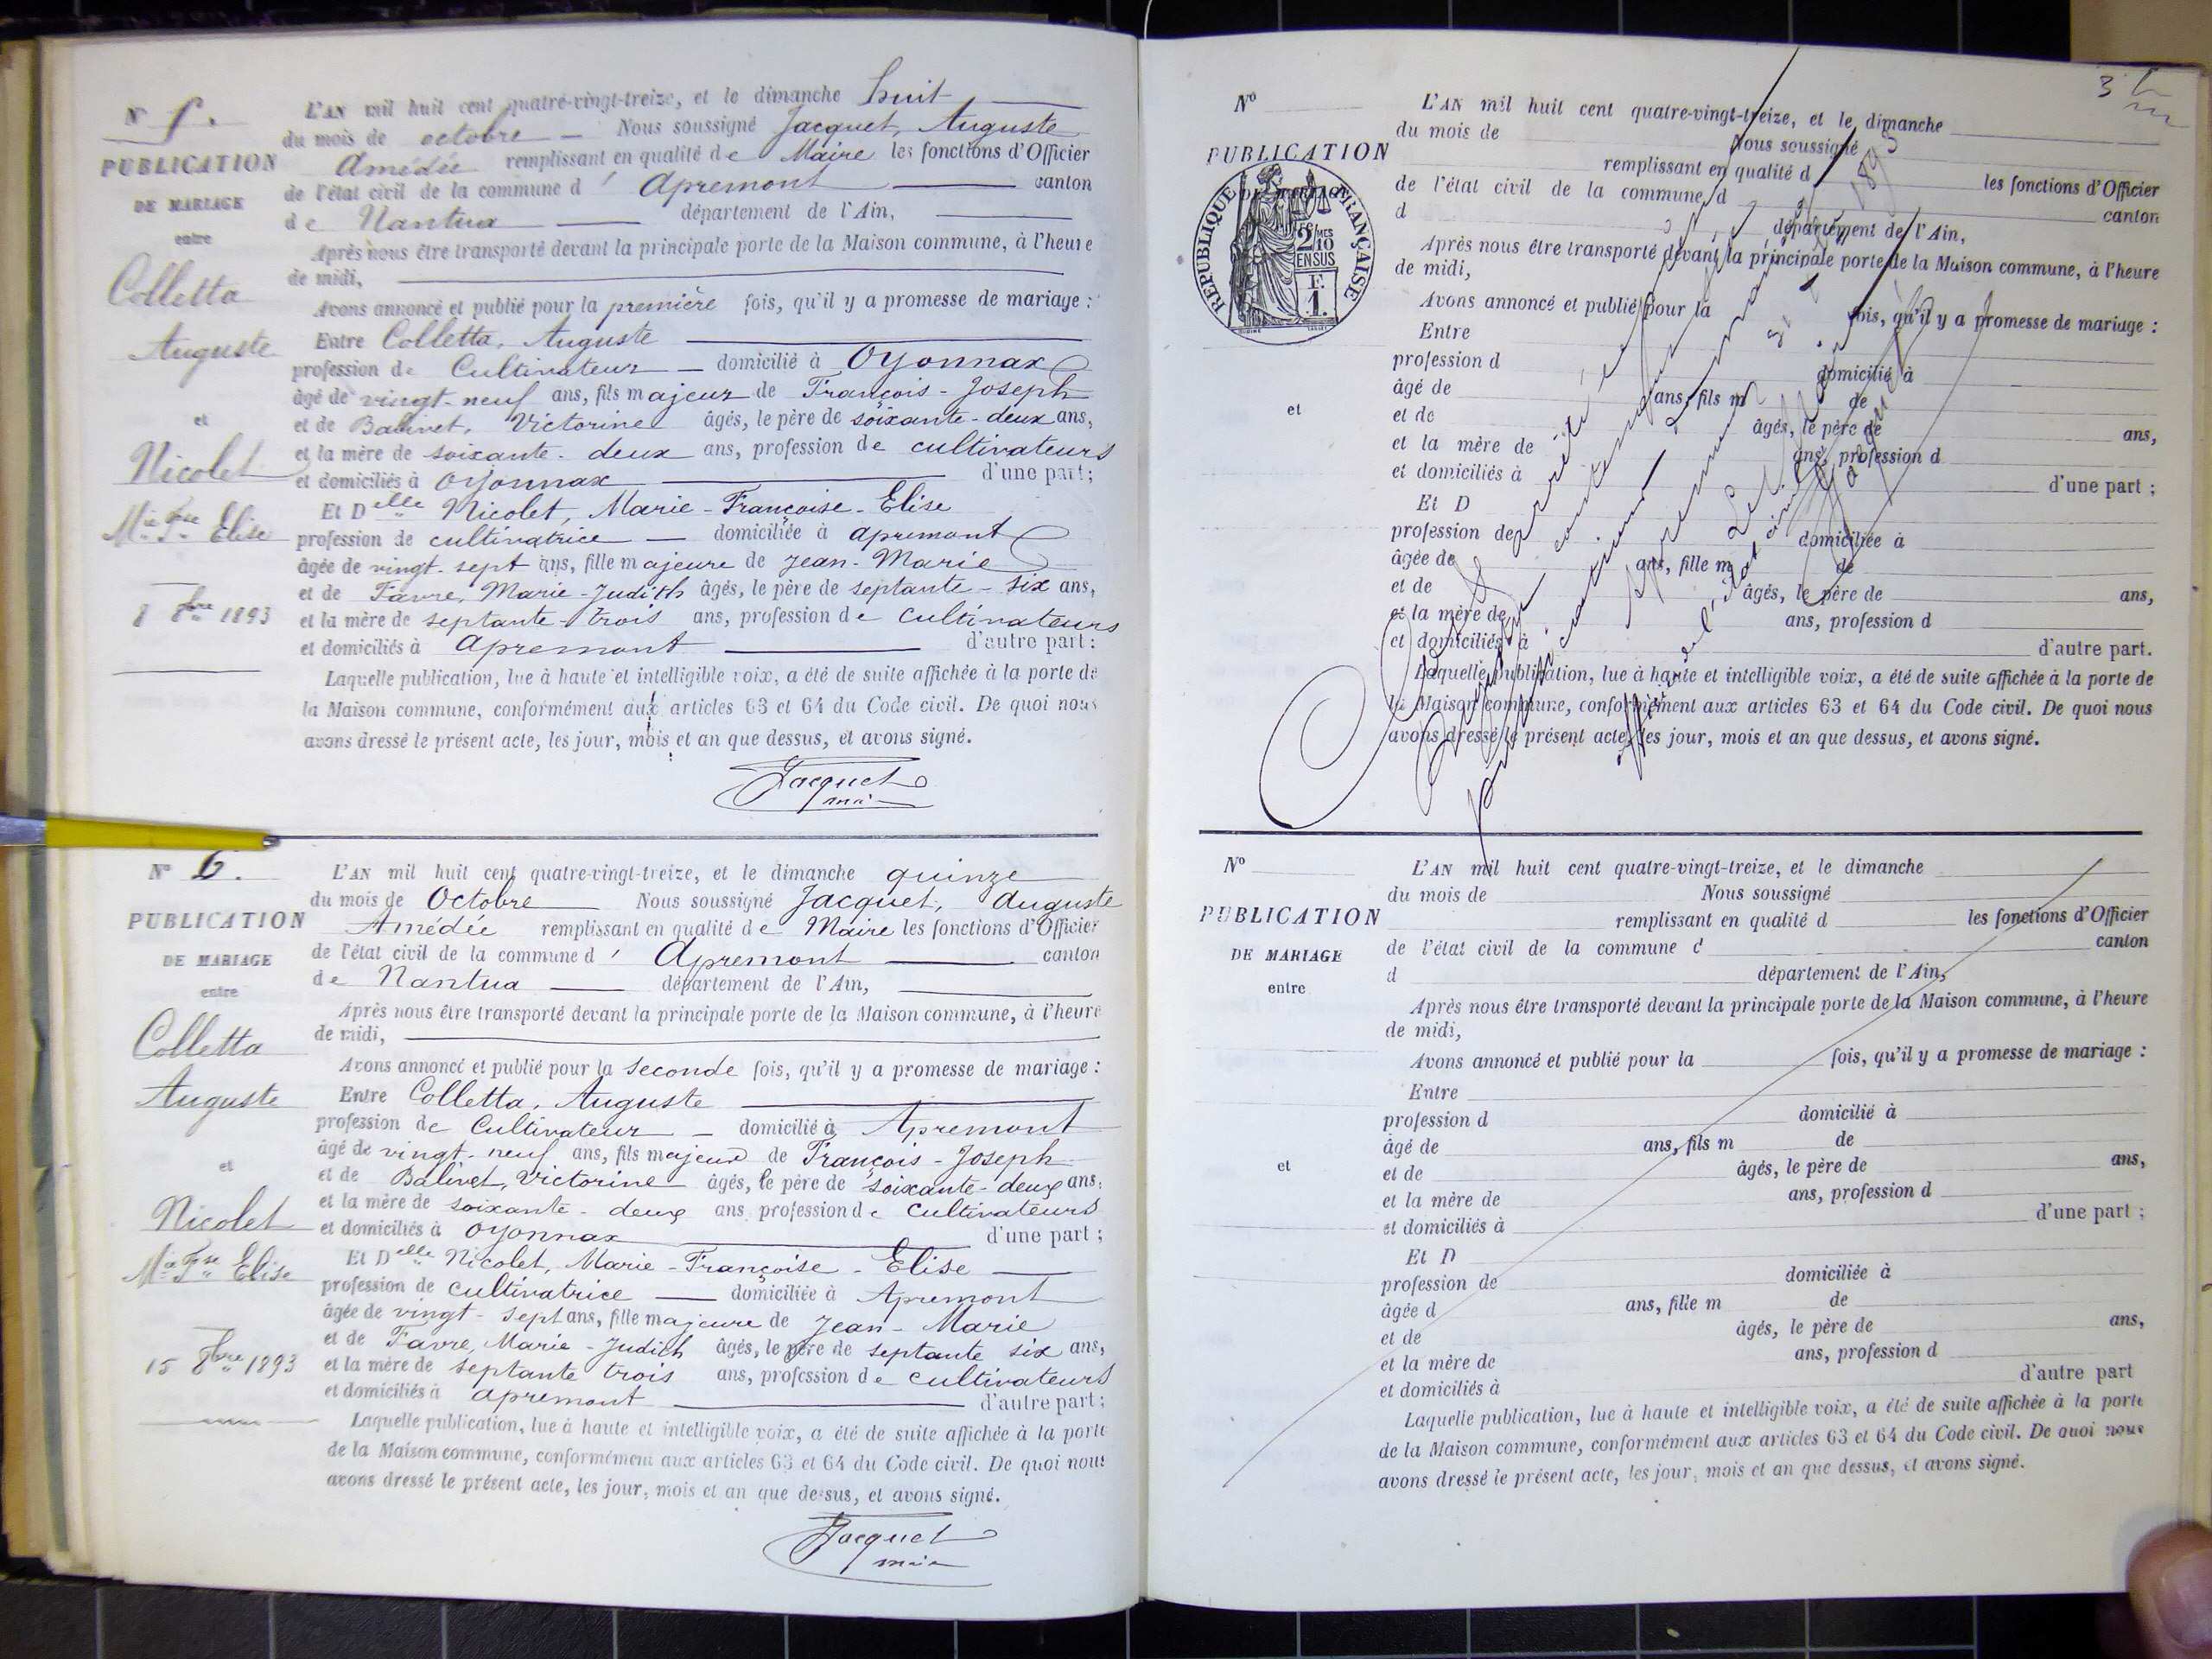 N° 5.
PUBLICATION
DE MARIAGE
entre
Colletta
Auguste
et
Nicolet
Mie Fse Elise
8 8bre 1893
L'AN mil huit cent quatre-vingt-treize, et le dimanche huit
du mois de octobre — Nous soussigné Jacquet, Auguste
Amédée remplissant en qualité de Maire les fonctions d'Officier
de l'état civil de la commune d' Apremont canton
de Nantua département de l'Ain,
Après nous être transporté devant la principale porte de la Maison commune, à l'heure
de midi,
Avons annoncé et publié pour la première fois, qu'il y a promesse de mariage :
Entre Colletta, Auguste
profession de Cultivateur — domicilié à Oyonnax
âgé de vingt-neuf ans, fils majeur de François-Joseph
et de Balivet, Victorine âgés, le père de soixante-deux ans,
et la mère de soixante-deux ans, profession de cultivateurs
et domiciliés à Oyonnax d'une part;
Et Delle Nicolet, Marie-Françoise-Elise
profession de cultivatrice — domiciliée à apremont
âgée de vingt-sept ans, fille majeure de Jean-Marie
et de Favre, Marie-Judith âgés, le père de septante-six ans,
et la mère de septante-trois ans, profession de cultivateurs
et domiciliés à apremont d'autre part:
Laquelle publication, lue à haute et intelligible voix, a été de suite affichée à la porte de
la Maison commune, conformément aux articles 63 et 64 du Code civil. De quoi nous
avons dressé le présent acte, les jour, mois et an que dessus, et avons signé.
Jacquet
N° 6.
PUBLICATION
DE MARIAGE
entre
Colletta
Auguste
et
Nicolet
Mie Fse Elise
15 8bre 1893
L'AN mil huit cent quatre-vingt-treize, et le dimanche quinze
du mois de Octobre Nous soussigné Jacquet, Auguste
Amédée remplissant en qualité de Maire les fonctions d'Officier
de l'état civil de la commune d' Apremont canton
de Nantua département de l'Ain,
Après nous être transporté devant la principale porte de la Maison commune, à l'heure
de midi,
Avons annoncé et publié pour la seconde fois, qu'il y a promesse de mariage :
Entre Colletta, Auguste
profession de Cultivateur — domicilié à Apremont
âgé de vingt-neuf ans, fils majeur de François-Joseph
et de Balivet, Victorine âgés, le père de soixante-deux ans,
et la mère de soixante-deux ans profession de cultivateurs
et domiciliés à Oyonnax d'une part ;
Et Delle Nicolet, Marie-Françoise-Elise
profession de cultivatrice — domiciliée à Apremont
âgée de vingt-sept ans, fille majeure de Jean-Marie
et de Favre, Marie-Judith âgés, le père de septante six ans,
et la mère de septante trois ans, profession de cultivateurs
et domiciliés à apremont d'autre part;
Laquelle publication, lue à haute et intelligible voix, a été de suite affichée à la porte
de la Maison commune, conformément aux articles 63 et 64 du Code civil. De quoi nous
avons dressé le présent acte, les jour, mois et an que dessus, et avons signé.
Jacquet
3
N°
PUBLICATION
RÉPUBLIQUE FRANÇAISE
2/10
EN SUS
F.
1.
et
L'AN mil huit cent quatre-vingt-treize, et le dimanche
du mois de Nous soussigné
remplissant en qualité d les fonctions d'Officier
de l'état civil de la commune d canton
d département de l'Ain,
Après nous être transporté devant la principale porte de la Maison commune, à l'heure
de midi,
Avons annoncé et publié pour la fois, qu'il y a promesse de mariage :
Entre
profession d domicilié à
âgé de ans, fils m de
et de âgés, le père de ans,
et la mère de ans, profession d
et domiciliés à d'une part ;
Et D
profession de domiciliée à
âgée de ans, fille m de
et de âgés, le père de ans,
et la mère de ans, profession d
et domiciliés à d'autre part.
Laquelle publication, lue à haute et intelligible voix, a été de suite affichée à la porte de
la Maison commune, conformément aux articles 63 et 64 du Code civil. De quoi nous
avons dressé le présent acte, les jour, mois et an que dessus, et avons signé.
N°
PUBLICATION
DE MARIAGE
entre
et
L'AN mil huit cent quatre-vingt-treize, et le dimanche
du mois de Nous soussigné
remplissant en qualité d les fonctions d'Officier
de l'état civil de la commune d canton
d département de l'Ain,
Après nous être transporté devant la principale porte de la Maison commune, à l'heure
de midi,
Avons annoncé et publié pour la fois, qu'il y a promesse de mariage :
Entre
profession d domicilié à
âgé de ans, fils m de
et de âgés, le père de ans,
et la mère de ans, profession d
et domiciliés à d'une part ;
Et D
profession de domiciliée à
âgée d ans, fille m de
et de âgés, le père de ans,
et la mère de ans, profession d
et domiciliés à d'autre part
Laquelle publication, lue à haute et intelligible voix, a été de suite affichée à la porte
de la Maison commune, conformément aux articles 63 et 64 du Code civil. De quoi nous
avons dressé le présent acte, les jour, mois et an que dessus, et avons signé.